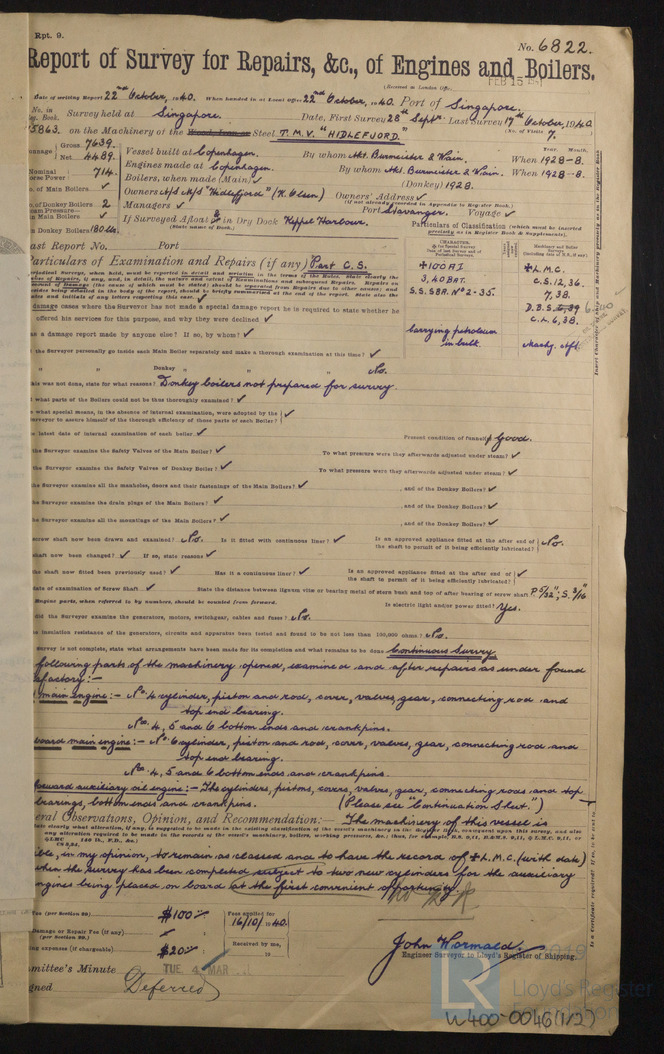 Rpt. 9.
No. 6822.
Report of Survey for Repairs, &c., of Engines and Boilers.
(Received at London Office
FEB 15
Date of writing Report 22nd October, 1940. When handed in at Local Office 22nd October, 1940. Port of Singapore.
No. in Survey held at Singapore. Date, First Survey 28th Septr. Last Survey 17th October, 1940
Reg. Book. (No. of Visits 7.
15863. on the Machinery of the Wood, Iron or Steel T.M.V. "HIDLEFJORD."
Gross 7639. Vessel built at Copenhagen. By whom Akt. Burmeister & Wain. When 1928-8.
Tonnage Net 4439. Engines made at Copenhagen. By whom Akt. Burmeister & Wain. When 1928-8.
Nominal Horse Power 714. Boilers, when made (Main) ✓ (Donkey) 1928.
No. of Main Boilers ✓ Owners A/S M/S "Hidlefjord" (K. Olsen) Owners' Address ✓
(if not already recorded in Appendix to Register Book.)
No. of Donkey Boilers 2 Managers ✓ Port Stavanger. Voyage ✓
Steam Pressure—
in Main Boilers ✓ If Surveyed Afloat & in Dry Dock Keppel Harbour.
(State name of Dock.)
in Donkey Boilers 180 lb.
Particulars of Classification (which must be inserted precisely as in Register Book & Supplements).
Last Report No. Port
Particulars of Examination and Repairs (if any) Part C.S.
✠100A1
3,40 BAT.
S.S. SBA. No 2-35.
Carrying petroleum in bulk.
✠L.M.C.
C.S. 12,36.
7,38.
D.B.S. 6,39
C.L. 6,38.
Machy. Aft.
damage cases where the Surveyor has not made a special damage report he is required to state whether he
offered his services for this purpose, and why they were declined ✓
as a damage report made by anyone else? If so, by whom? ✓
the Surveyor personally go inside each Main Boiler separately and make a thorough examination at this time? ✓
" " Donkey " " " " No.
this was not done, state for what reasons? Donkey boilers not prepared for survey.
what parts of the Boilers could not be thus thoroughly examined? ✓
what special means, in the absence of internal examination, were adopted by the
Surveyor to assure himself of the thorough efficiency of those parts of each Boiler? ✓
latest date of internal examination of each boiler ✓ Present condition of funnel Good.
the Surveyor examine the Safety Valves of the Main Boiler? ✓ To what pressure were they afterwards adjusted under steam? ✓
the Surveyor examine the Safety Valves of Donkey Boiler? ✓ To what pressure were they afterwards adjusted under steam? ✓
the Surveyor examine all the manholes, doors and their fastenings of the Main Boilers? ✓ , and of the Donkey Boilers? ✓
the Surveyor examine the drain plugs of the Main Boilers? ✓ , and of the Donkey Boilers? ✓
the Surveyor examine all the mountings of the Main Boilers? ✓ , and of the Donkey Boilers? ✓
screw shaft now been drawn and examined? No. Is it fitted with continuous liner? ✓ Is an approved appliance fitted at the after end of the shaft to permit of it being efficiently lubricated? No.
shaft now been changed? ✓ If so, state reasons ✓
the shaft now fitted been previously used? ✓ Has it a continuous liner? ✓ Is an approved appliance fitted at the after end of the shaft to permit of it being efficiently lubricated? ✓
date of examination of Screw Shaft ✓ State the distance between lignum vitæ or bearing metal of stern bush and top of after bearing of screw shaft P. 5/32"; S. 3/16"
Engine parts, when referred to by numbers, should be counted from forward. Is electric light and/or power fitted? Yes.
did the Surveyor examine the generators, motors, switchgear, cables and fuses? No.
the insulation resistance of the generators, circuits and apparatus been tested and found to be not less than 100,000 ohms? No.
Survey is not complete, state what arrangements have been made for its completion and what remains to be done Continuous Survey.
following parts of the machinery opened, examined and after repairs as under found
factory:-
main engine:- No. 4 cylinder, piston and rod, cover, valves, gear, connecting rod and
top end bearing.
Nos. 4, 5 and 6 bottom ends and crankpins.
board main engine:- No. 6 cylinder, piston and rod, cover, valves, gear, connecting rod and
top end bearing.
Nos. 4, 5 and 6 bottom ends and crankpins.
forward auxiliary oil engine:- The cylinders, pistons, covers, valves, gear, connecting rods and top
bearings, bottom ends and crankpins. (Please see "Continuation Sheet.")
General Observations, Opinion, and Recommendation:— The machinery of this vessel is
ible, in my opinion, to remain as classed and to have the record of ✠L.M.C. (with date)
when the survey has been completed subject to two new cylinders for the auxiliary
engines being placed on board at the first convenient opportunity.
Fee (per Section 29) $100:- Fees applied for 16/10/1940.
Damage or Repair Fee (if any)
(per Section 29.)
expenses (if chargeable) $20:- Received by me,
John Wormald.
Engineer Surveyor to Lloyd's Register of Shipping.
Committee's Minute TUE 4 MAR
Deferred
2019
LR
Lloyd's Register
Foundation
W400-0046(1/2)